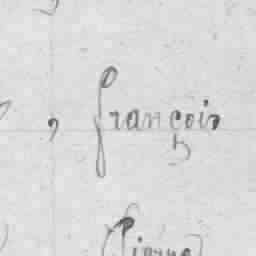 , françois
Pierre